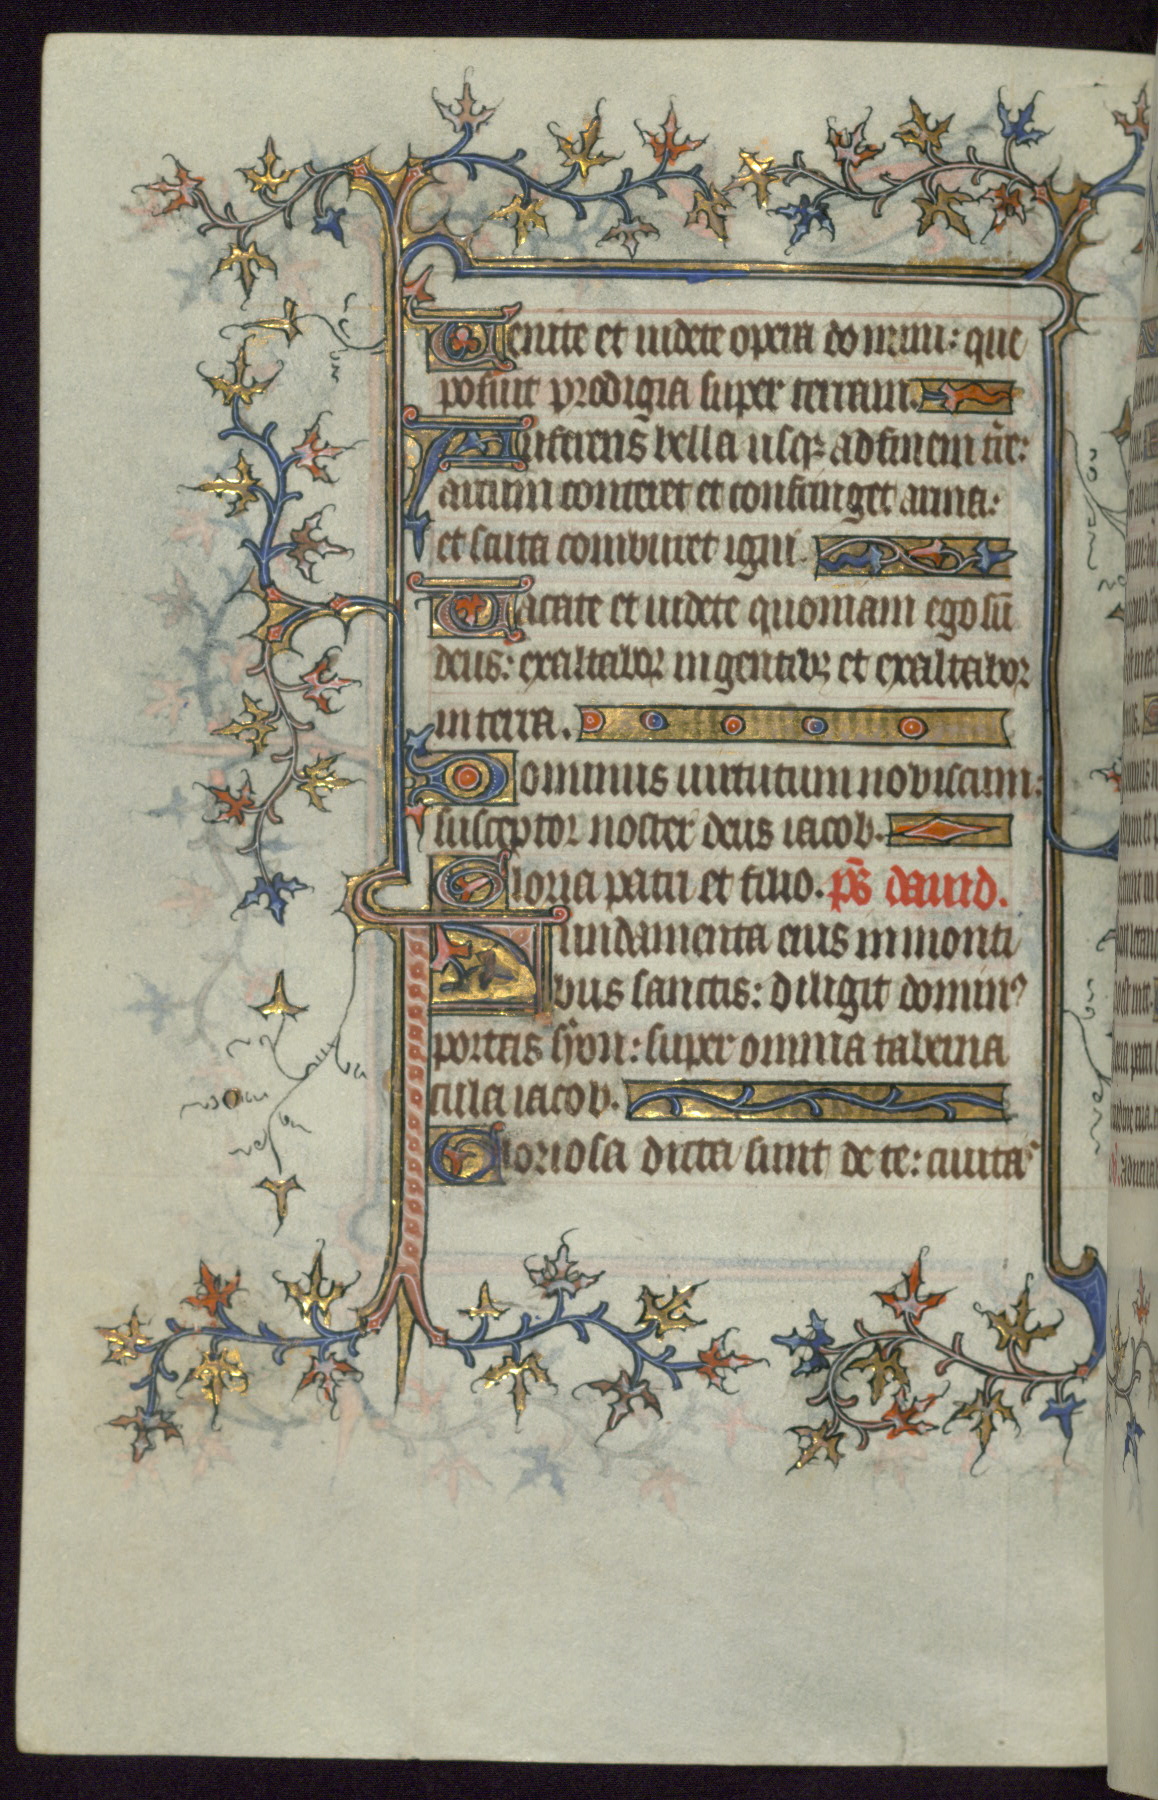 Uenite et uidete opera domini: que
posuit prodigia super terram.
Auferens bella usq; ad finem tr̄e:
arcum conteret et confringet arma:
et scuta comburet igni.
Uacate et uidete quoniam ego sū
deus: exaltabor in gentibꝫ et exaltabor
in terra.
Dominus uirtutum nobiscum:
susceptor noster deus iacob.
Gloria patri et filio. p̄s dauid.
Fundamenta eius in monti
bus sanctis: diligit dominꝰ
portas syon: super omnia taberna
cula iacob.
Gloriosa dicta sunt de te: ciuitas